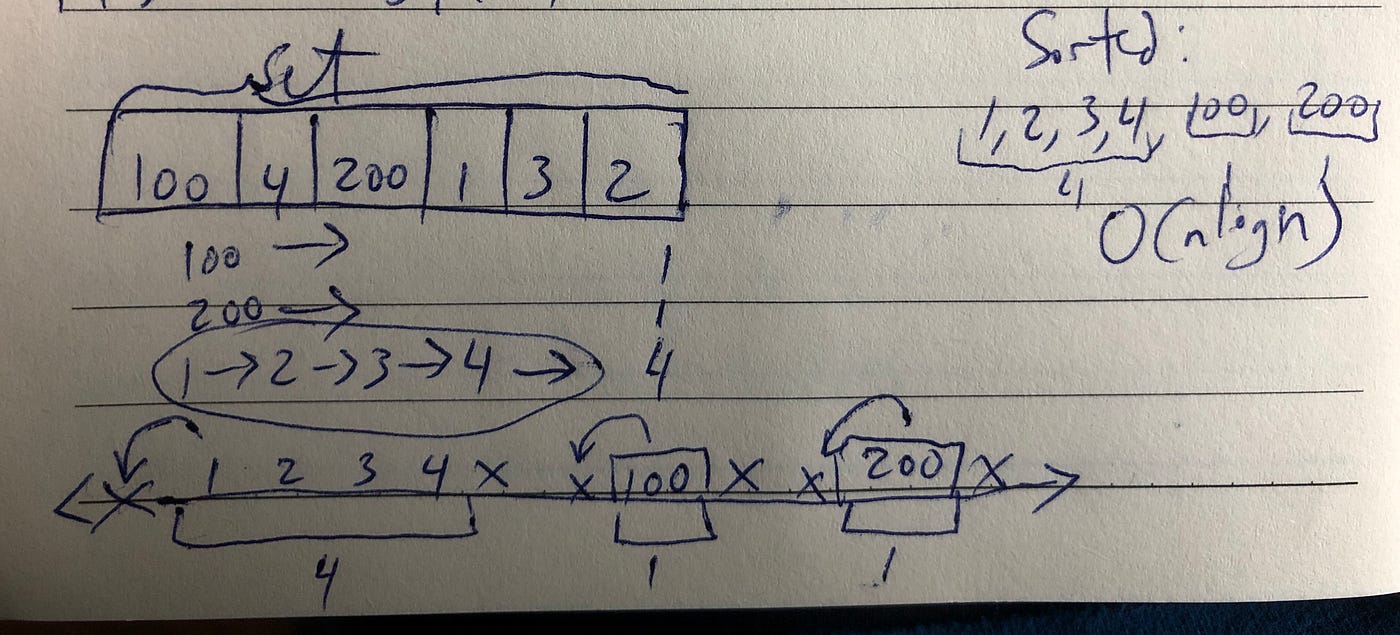 set
Sorted:
1, 2, 3, 4, 100, 200
4
O(nlogn)
100 4 200 1 3 2
100 → 1
200 → 1
1 → 2 → 3 → 4 → 4
X 1 2 3 4 X X 100 X X 200 X
4 1 1